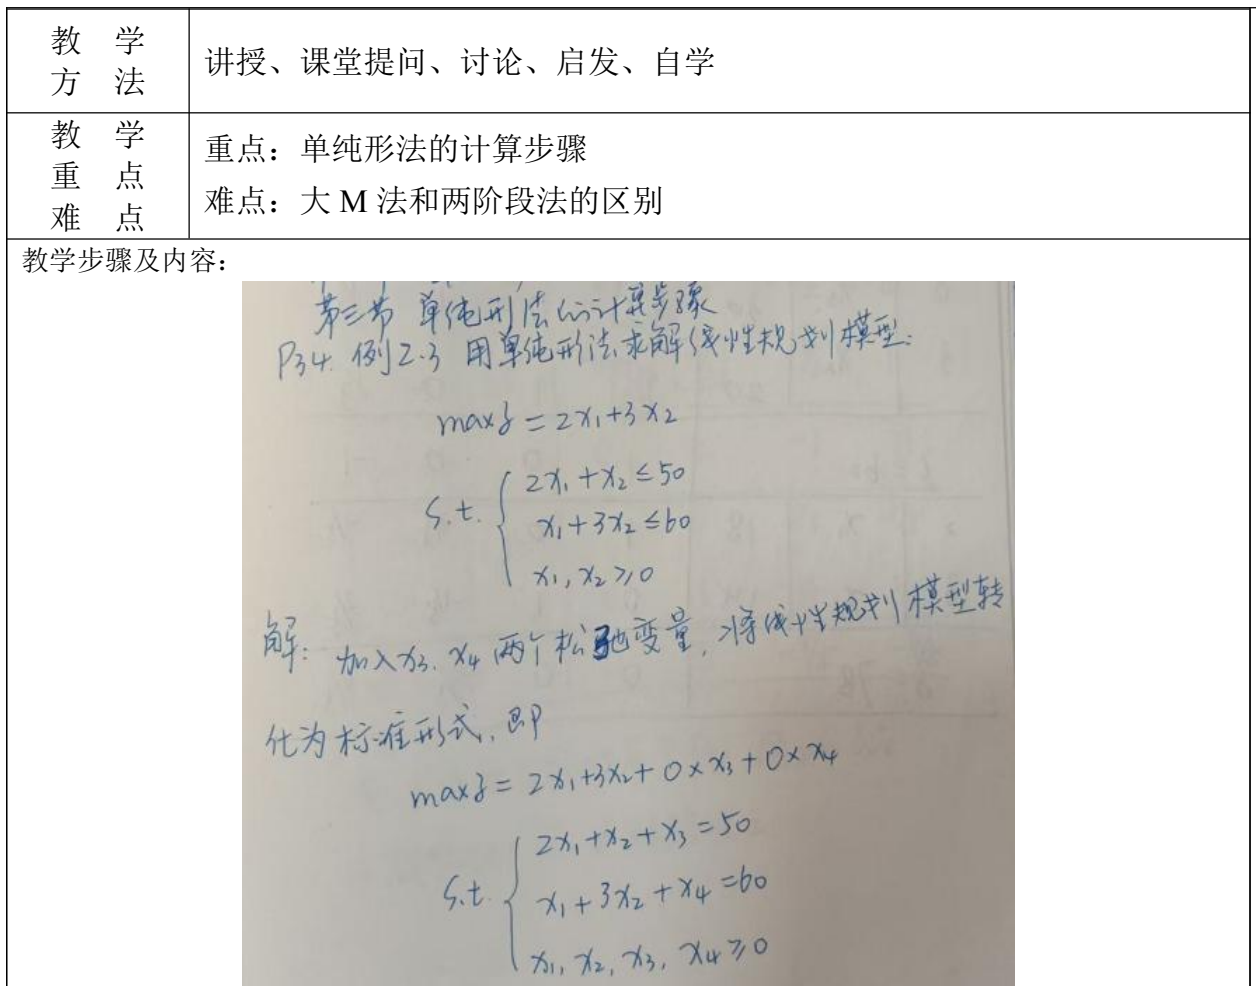 教 学
方 法
讲授、课堂提问、讨论、启发、自学
教 学
重 点
难 点
重点：单纯形法的计算步骤
难点：大 M 法和两阶段法的区别
教学步骤及内容：
第三节 单纯形法的计算步骤
P34 例2.3 用单纯形法求解线性规划模型：
max z = 2x₁+3x₂
s.t. { 2x₁+x₂≤50
x₁+3x₂≤60
x₁,x₂≥0
解：加入x₃、x₄两个松弛变量，将线性规划模型转
化为标准形式，即
max z = 2x₁+3x₂+0×x₃+0×x₄
s.t. { 2x₁+x₂+x₃=50
x₁+3x₂+x₄=60
x₁,x₂,x₃,x₄≥0